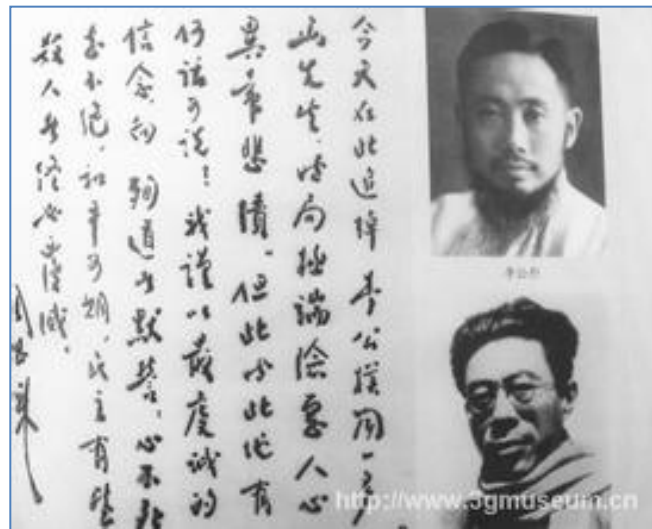 今天在此追悼李公樸聞一多
两先生，时局極端險惡人心
異常悲憤。但此时此地有
何話可说！我謹以最虔诚的
信念，向殉道者默誓：心不死，
志不绝，和平可期，民主有望
殺人者终必覆滅。
周恩来
李公朴
http://www.3gmuseum.cn